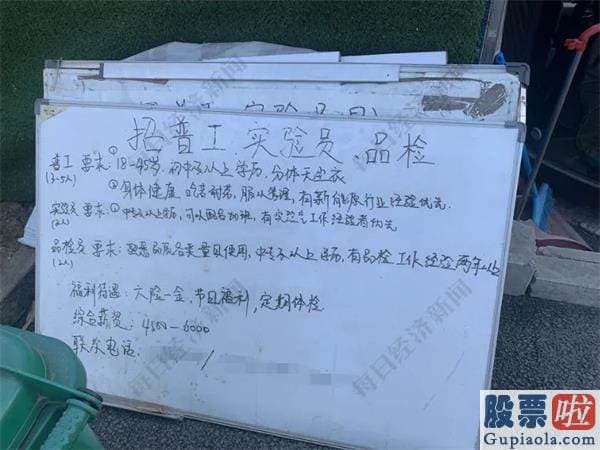 招普工、实验员、品检
普工 要求:①18-45岁,初中及以上学历,分体无尘衣
(3-5人)
②身体健康,吃苦耐劳,服从管理,有新能源行业经验优先
实验员 要求:①中专以上学历,可以配合加班,有实验员工作经验者优先
(2人)
品检员 要求:熟悉品质各类量具使用,中专及以上学历,有品检工作经验两年以上
福利待遇:六险一金,节日福利,定期体检
综合薪资:4500-6000
联系电话:
每日经济新闻
每日经济新闻
每日经济新闻
股票啦
Gupiaola.com